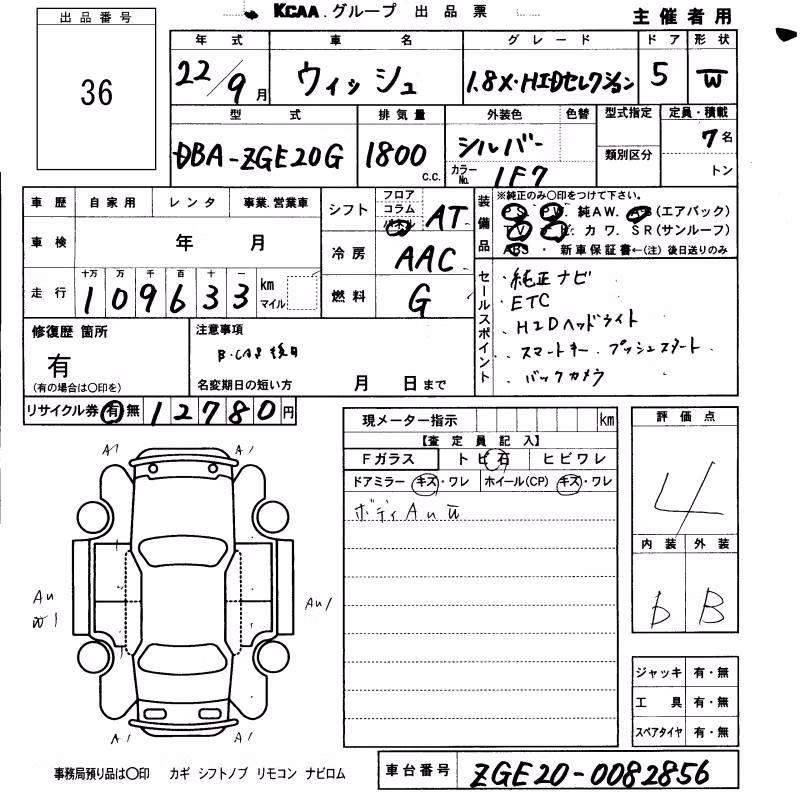 KCAA.グループ 出品票
主催者用
出品番号
36
年式 車名 グレード ドア 形状
22/9月 ウィッシュ 1.8X・HIDセレクション 5 W
型式 排気量 外装色 色替 型式指定 定員・積載
DBA-ZGE20G 1800 c.c. シルバー 7名
カラーNo. 1F7 類別区分 トン
車歴 自家用 レンタ 事業.営業車
シフト フロア コラム パネル AT
装備品 ※純正のみ○印をつけて下さい。
PS. PW. 純AW. AB(エアバック)
TV カワ. SR(サンルーフ)
ABS ・ 新車保証書←(注) 後日送りのみ
車検 年 月
冷房 AAC
走行 十万 万 千 百 十 一
109633 km マイル
燃料 G
セールスポイント
・純正ナビ
・ETC
・HIDヘッドライト
・スマートキー・プッシュスタート
・バックカメラ
修復歴 箇所
有
(有の場合は○印を)
注意事項
B・CAS後日
名変期日の短い方 月 日まで
リサイクル券 有 無 12780円
現メーター指示 km
【査定員記入】
Fガラス トビ石 ヒビワレ
ドアミラー キズ・ワレ ホイール(CP) キズ・ワレ
ボディAuW
評価点
4
内装 外装
b B
A1 A1
AuW1 Au1
A1 A1
ジャッキ 有・無
工具 有・無
スペアタイヤ 有・無
事務局預り品は○印 カギ シフトノブ リモコン ナビロム
車台番号 ZGE20-0082856